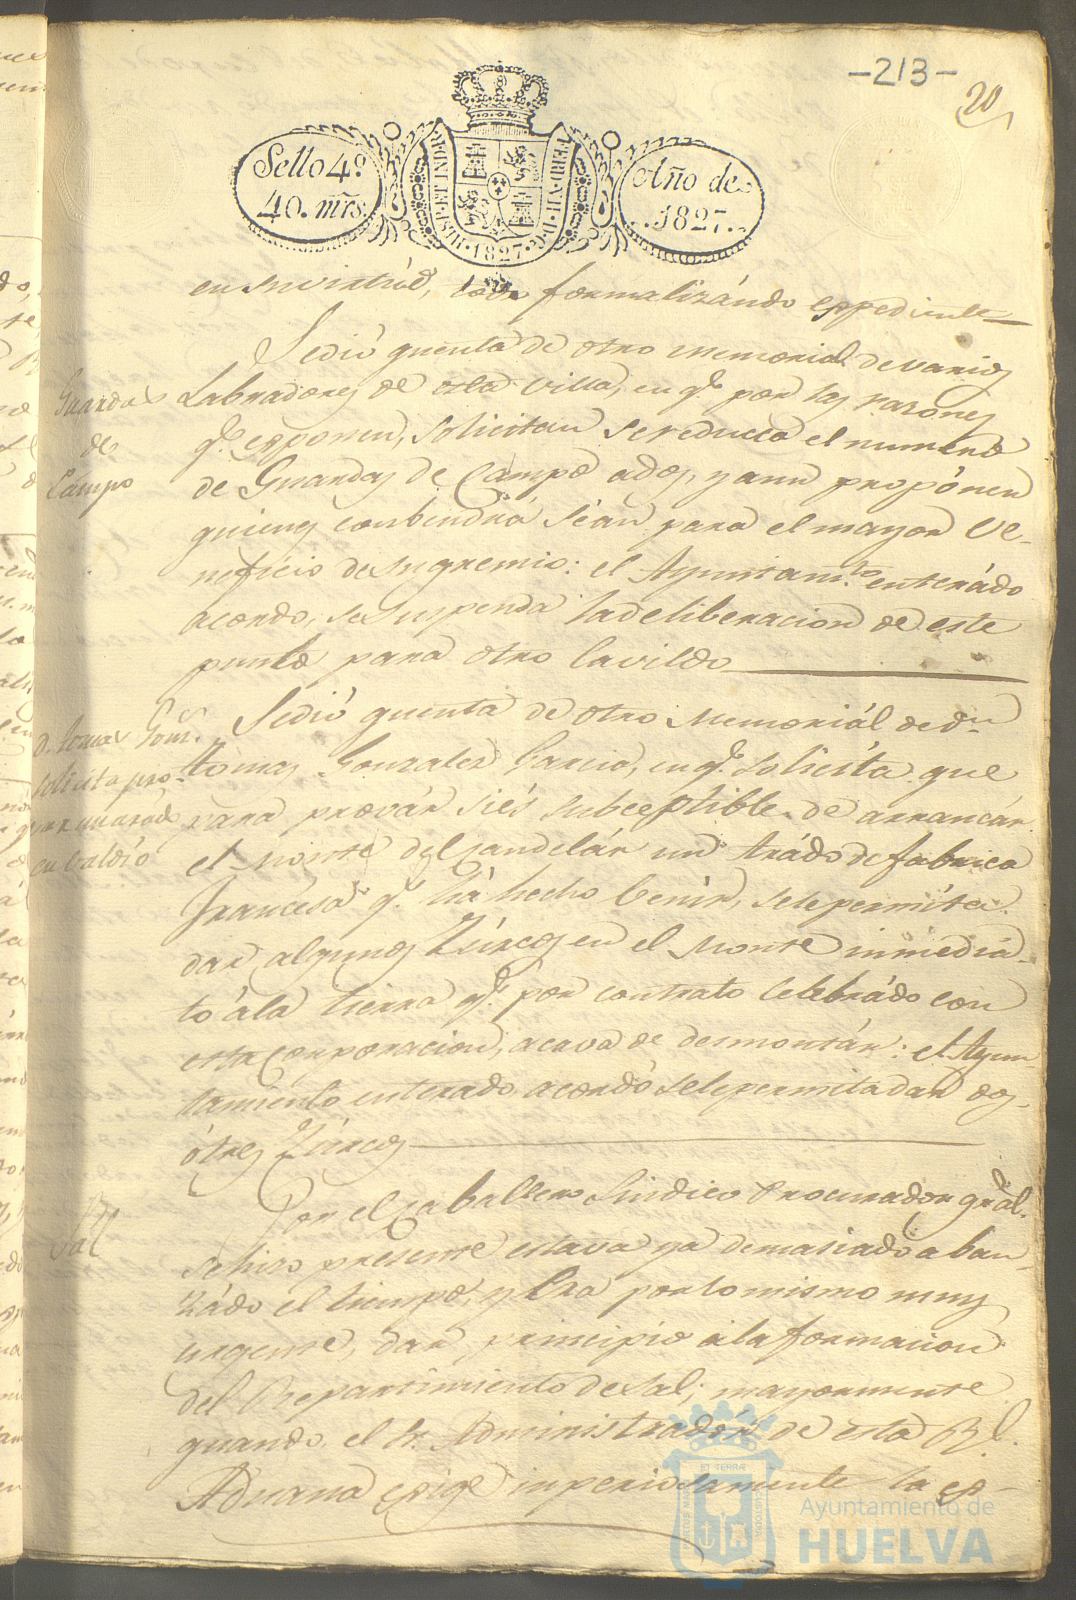 -213-
20
Sello 4º
40. mrs.
HISP. ET IND. R.
FERD. VII. D. G.
1827
Año de
1827.
en su virtud, formalizándo expediente
Se dió quenta de otro memorial de varios
Guardas
de
Campo
Labradores de esta Villa, en qe. por las razones
qe. exponen, solicitan se reduzca el numero
de Guardas de Campo a dos, y aun propónen
quienes conbindrá séan para el mayor ve-
neficio de su gremio: el Ayuntamto. enterádo
acordo, se suspenda la deliberacion de este
punto para otro Cavildo
Se dió quenta de otro Memoriál de dn
D. Tomas Gons.
solicita pro-
en valdío
tomas Gonzalez Garcia, en qe. solicíta que
para provár si és subceptible de arrancár
el monte del Candelár un arádo de fabrica
francésa qe. há hecho benír, se le permíta
dar algunos Zúrcos en el Monte inmediá-
to á la tierra qe. por contrato celebrádo con
esta Corporacion, acava de desmontár: el Ayun-
tamiento enterado acordó se le permita dar dos
ó tres Zúrcos
Rl
Sal
Por el Caballero Sindico Procurador grãl.
se hizo presente estava ya demasiado aban-
zádo el tiempo, y Era por lo mismo muy
urgente, dar principio á la formacion
del Repartimiento de Sal; mayormente
quando el Sr. Administrador de esta Rl.
Aduana exige inperiosamente la ex-
Ayuntamiento de
HUELVA